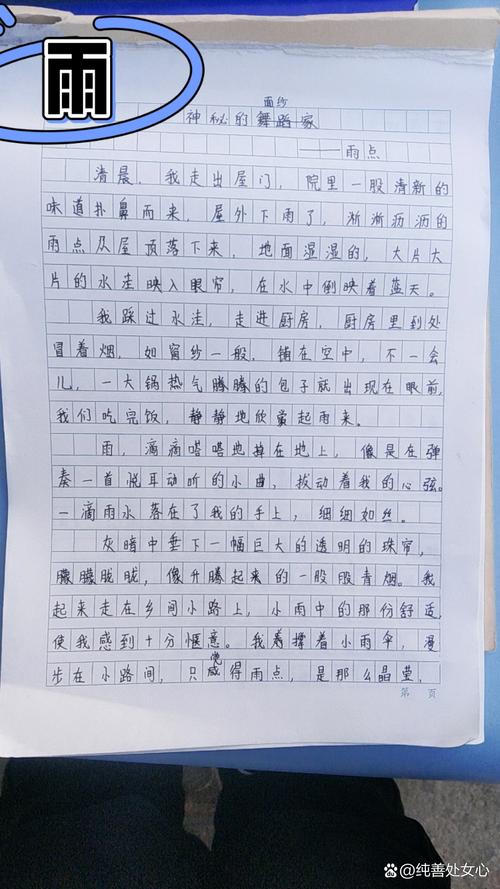 雨
面纱
神秘的舞蹈家
——雨点
清晨，我走出屋门，院里一股清新的
味道扑鼻而来，屋外下雨了，淅淅沥沥的
雨点从屋顶落下来，地面湿湿的，大片大
片的水洼映入眼帘，在水中倒映着蓝天。
我踩过水洼，走进厨房，厨房里到处
冒着烟，如窗纱一般，铺在空中，不一会
儿，一大锅热气腾腾的包子就出现在眼前，
我们吃完饭，静静地欣赏起雨来。
雨，滴滴嗒嗒地掉在地上，像是在弹
奏一首悦耳动听的小曲，拔动着我的心弦。
一滴雨水落在了我的手上，细细如丝。
灰暗中垂下一幅巨大的透明的珠帘，
朦朦胧胧，像升腾起来的一股股青烟。我
起来走在乡间小路上，小雨中的那份舒适，
使我感到十分惬意。我撑着小雨伞，漫
步在小路间，只觉得雨点，是那么晶莹，
第 页
@纯善处女心